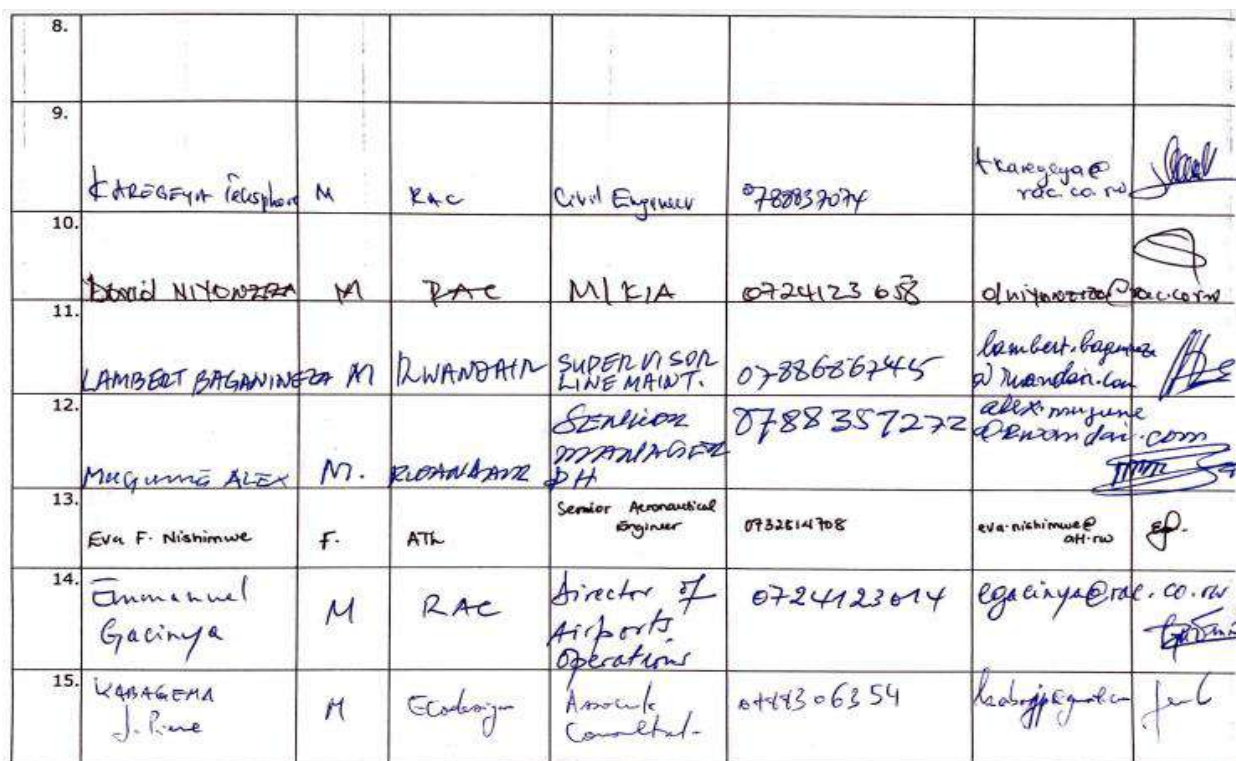 8.
9.
KAREGEYA Telesphore M RAC Civil Engineer 0788837074 tkaregeya@
rac.co.rw
10.
David NIYONZIZA M RAC M/KIA 0724123658 dniyonziza@rac.co.rw
11.
LAMBERT BAGANINEZA M RWANDAIR SUPERVISOR
LINE MAINT. 07886867445 lambert.baganineza
@rwandair.com
12.
MUGUME ALEX M. RWANDAIR SENIOR
MANAGER
PH 0788357272 alex.mugume
@rwandair.com
13.
Eva F. Nishimwe F. ATL Senior Aeronautical
Engineer eva.nishimwe@
atl.rw
14.
Emmanuel
Gacinya M RAC Director of
Airports
Operations 0724123014 egacinya@rac.co.rw
15.
KABAGEMA
J. Pierre M Ecodesign Associate
Consultant